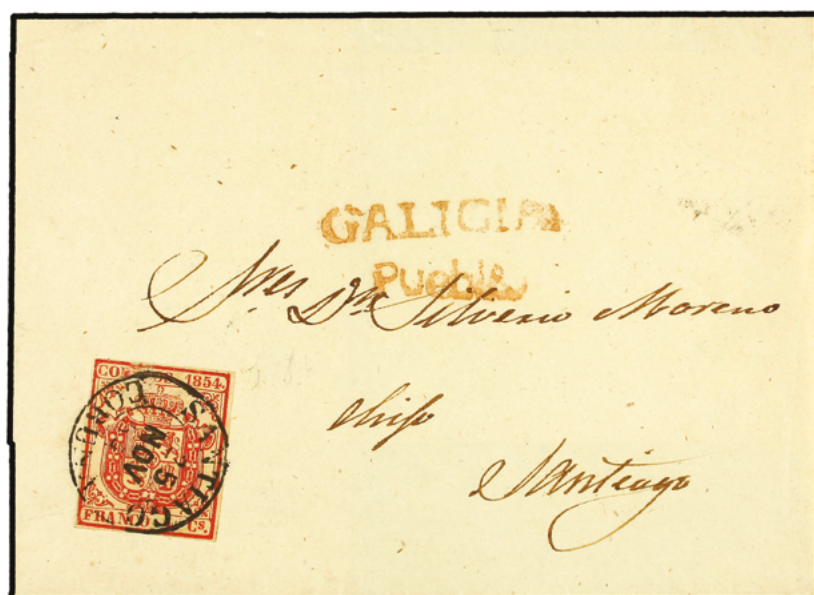 GALICIA
Puebla
Sres Dn Silverio Moreno
Santiago
CORREOS 1854.
FRANCO Cs.
SANTIAGO
NOV